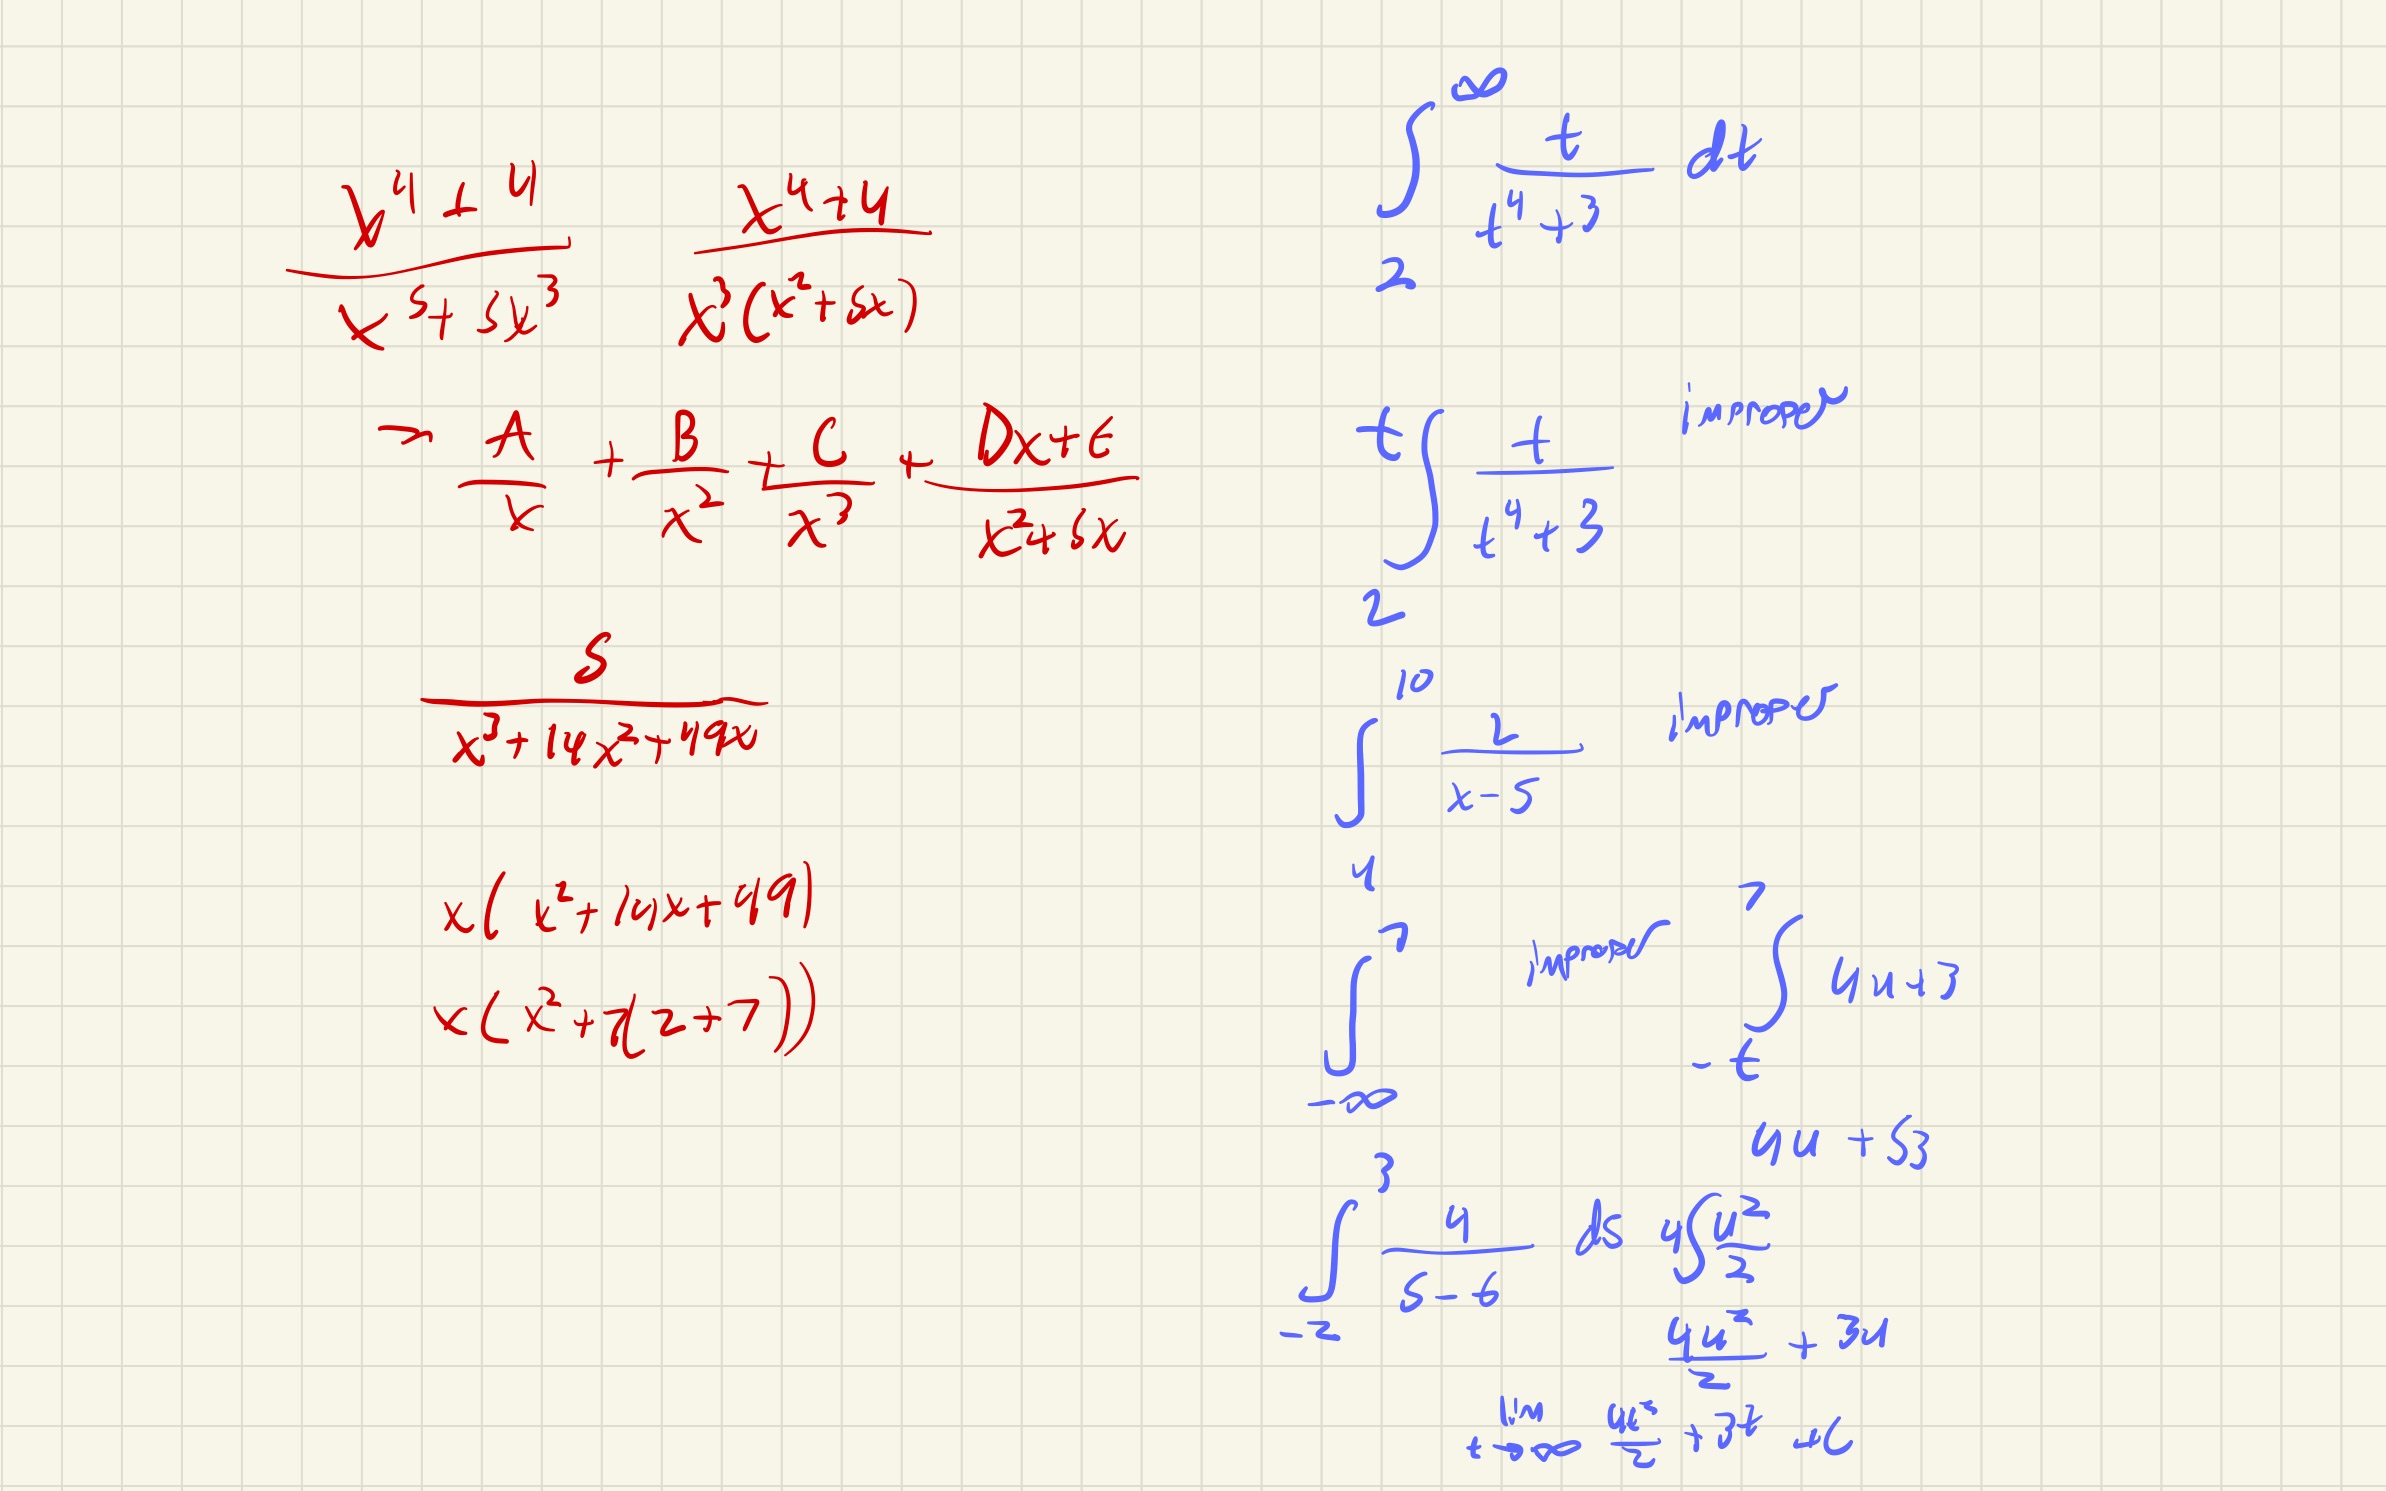 x^4 + 4 / x^5 + 5x^3    x^4 + 4 / x^3(x^2 + 5x)
= A/x + B/x^2 + C/x^3 + Dx+E / x^2+5x
5 / x^3 + 14x^2 + 49x
x(x^2 + 14x + 49)
x(x^2 + 7(2 + 7))
∫_2^∞ t / t^4 + 3 dt
t ∫_2 t / t^4 + 3    improper
∫_4^10 2 / x - 5    improper
∫_-∞^7    improper    ∫_-t^7 4u + 3
4u + 53
∫_-2^3 4 / s - 6 ds    4∫ u^2 / 2
4u^2 / 2 + 3u
lim t→∞ 4t^2 / 2 + 3t + C